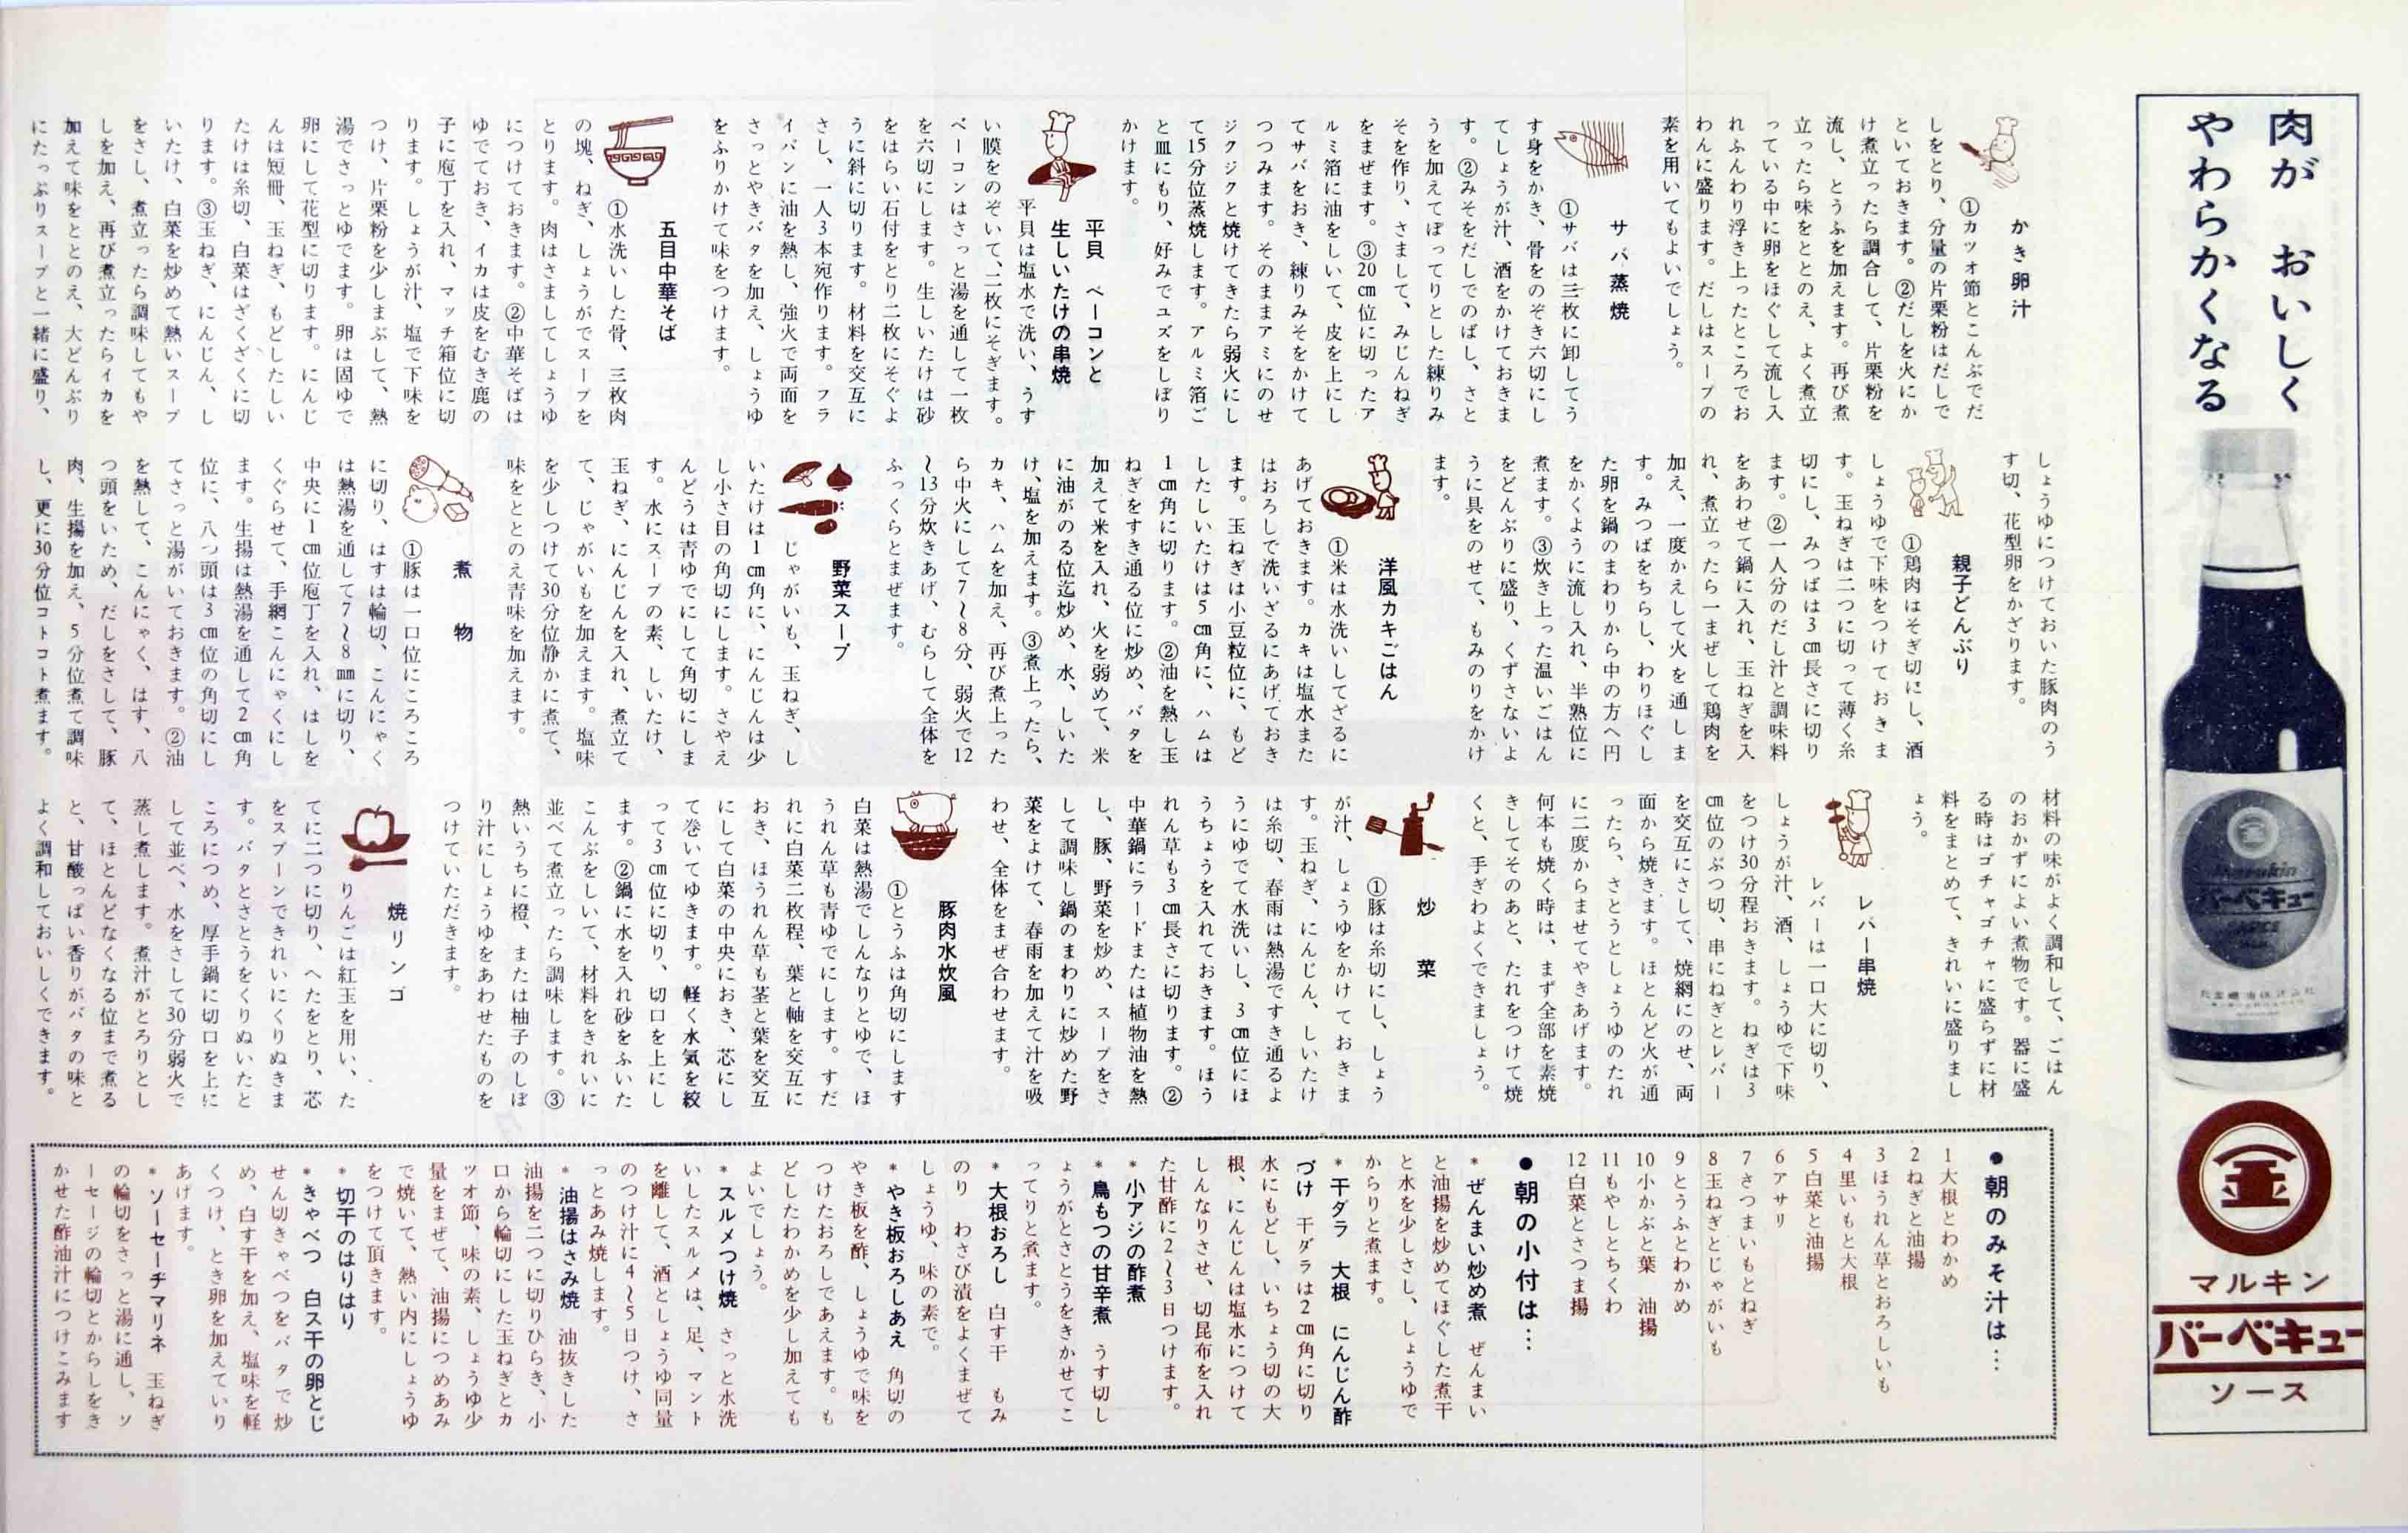 肉が　おいしく
やわらかくなる
バーベキュー
マルキン
バーベキュー
ソース
かき卵汁
①カツオ節とこんぶでだ
しをとり、分量の片栗粉はだしで
といておきます。②だしを火にか
け煮立ったら調合して、片栗粉を
流し、とうふを加えます。再び煮
立ったら味をととのえ、よく煮立
っている中に卵をほぐして流し入
れふんわり浮き上ったところでお
わんに盛ります。だしはスープの
素を用いてもよいでしょう。
サバ蒸焼
①サバは三枚に卸してう
す身をかき、骨をのぞき六切にし
てしょうが汁、酒をかけておきま
す。②みそをだしでのばし、さと
うを加えてぽってりとした練りみ
そを作り、さまして、みじんねぎ
をまぜます。③20cm位に切ったア
ルミ箔に油をしいて、皮を上にし
てサバをおき、練りみそをかけて
つつみます。そのままアミにのせ
ジクジクと焼けてきたら弱火にし
て15分位蒸焼します。アルミ箔ご
と皿にもり、好みでユズをしぼり
かけます。
平貝　ベーコンと
生しいたけの串焼
平貝は塩水で洗い、うす
い膜をのぞいて、二枚にそぎます。
ベーコンはさっと湯を通して一枚
を六切にします。生しいたけは砂
をはらい石付をとり二枚にそぐよ
うに斜に切ります。材料を交互に
さし、一人3本宛作ります。フラ
イパンに油を熱し、強火で両面を
さっとやきバタを加え、しょうゆ
をふりかけて味をつけます。
五目中華そば
①水洗いした骨、三枚肉
の塊、ねぎ、しょうがでスープを
とります。肉はさましてしょうゆ
につけておきます。②中華そばは
ゆでておき、イカは皮をむき鹿の
子に庖丁を入れ、マッチ箱位に切
ります。しょうが汁、塩で下味を
つけ、片栗粉を少しまぶして、熱
湯でさっとゆでます。卵は固ゆで
卵にして花型に切ります。にんじ
んは短冊、玉ねぎ、もどしたしい
たけは糸切、白菜はざくざくに切
ります。③玉ねぎ、にんじん、し
いたけ、白菜を炒めて熱いスープ
をさし、煮立ったら調味してもや
しを加え、再び煮立ったらイカを
加えて味をととのえ、大どんぶり
にたっぷりスープと一緒に盛り、
しょうゆにつけておいた豚肉のう
す切、花型卵をかざります。
親子どんぶり
①鶏肉はそぎ切にし、酒
しょうゆで下味をつけておきま
す。玉ねぎは二つに切って薄く糸
切にし、みつばは3cm長さに切り
ます。②一人分のだし汁と調味料
をあわせて鍋に入れ、玉ねぎを入
れ、煮立ったら一まぜして鶏肉を
加え、一度かえして火を通しま
す。みつばをちらし、わりほぐし
た卵を鍋のまわりから中の方へ円
をかくように流し入れ、半熟位に
煮ます。③炊き上った温いごはん
をどんぶりに盛り、くずさないよ
うに具をのせて、もみのりをかけ
ます。
洋風カキごはん
①米は水洗いしてざるに
あげておきます。カキは塩水また
はおろしで洗いざるにあげておき
ます。玉ねぎは小豆粒位に、もど
したしいたけは5cm角に、ハムは
1cm角に切ります。②油を熱し玉
ねぎをすき通る位に炒め、バタを
加えて米を入れ、火を弱めて、米
に油がのる位迄炒め、水、しいた
け、塩を加えます。③煮上ったら、
カキ、ハムを加え、再び煮上った
ら中火にして7〜8分、弱火で12
〜13分炊きあげ、むらして全体を
ふっくらとまぜます。
野菜スープ
じゃがいも、玉ねぎ、し
いたけは1cm角に、にんじんは少
し小さ目の角切にします。さやえ
んどうは青ゆでにして角切にしま
す。水にスープの素、しいたけ、
玉ねぎ、にんじんを入れ、煮立て
て、じゃがいもを加えます。塩味
を少しつけて30分位静かに煮て、
味をととのえ青味を加えます。
煮物
①豚は一口位にころころ
に切り、はすは輪切、こんにゃく
は熱湯を通して7〜8mmに切り、
中央に1cm位庖丁を入れ、はしを
くぐらせて、手綱こんにゃくにし
ます。生揚は熱湯を通して2cm角
位に、八つ頭は3cm位の角切にし
てさっと湯がいておきます。②油
を熱して、こんにゃく、はす、八
つ頭をいため、だしをさして、豚
肉、生揚を加え、5分位煮て調味
し、更に30分位コトコト煮ます。
材料の味がよく調和して、ごはん
のおかずによい煮物です。器に盛
る時はゴチャゴチャに盛らずに材
料をまとめて、きれいに盛りまし
ょう。
レバー串焼
レバーは一口大に切り、
しょうが汁、酒、しょうゆで下味
をつけ30分程おきます。ねぎは3
cm位のぶつ切、串にねぎとレバー
を交互にさして、焼網にのせ、両
面から焼きます。ほとんど火が通
ったら、さとうとしょうゆのたれ
に二度からませてやきあげます。
何本も焼く時は、まず全部を素焼
きしてそのあと、たれをつけて焼
くと、手ぎわよくできましょう。
炒菜
①豚は糸切にし、しょう
が汁、しょうゆをかけておきま
す。玉ねぎ、にんじん、しいたけ
は糸切、春雨は熱湯ですき通るよ
うにゆでて水洗いし、3cm位にほ
うちょうを入れておきます。ほう
れん草も3cm長さに切ります。②
中華鍋にラードまたは植物油を熱
し、豚、野菜を炒め、スープをさ
して調味し鍋のまわりに炒めた野
菜をよけて、春雨を加えて汁を吸
わせ、全体をまぜ合わせます。
豚肉水炊風
①とうふは角切にします
白菜は熱湯でしんなりとゆで、ほ
うれん草も青ゆでにします。すだ
れに白菜二枚程、葉と軸を交互に
おき、ほうれん草も茎と葉を交互
にして白菜の中央におき、芯にし
て巻いてゆきます。軽く水気を絞
って3cm位に切り、切口を上にし
ます。②鍋に水を入れ砂をふいた
こんぶをしいて、材料をきれいに
並べて煮立ったら調味します。③
熱いうちに橙、または柚子のしぼ
り汁にしょうゆをあわせたものを
つけていただきます。
焼リンゴ
りんごは紅玉を用い、た
てに二つに切り、へたをとり、芯
をスプーンできれいにくりぬきま
す。バタとさとうをくりぬいたと
ころにつめ、厚手鍋に切口を上に
して並べ、水をさして30分弱火で
蒸し煮します。煮汁がとろりとし
て、ほとんどなくなる位まで煮る
と、甘酸っぱい香りがバタの味と
よく調和しておいしくできます。
●朝のみそ汁は…
1大根とわかめ
2ねぎと油揚
3ほうれん草とおろしいも
4里いもと大根
5白菜と油揚
6アサリ
7さつまいもとねぎ
8玉ねぎとじゃがいも
9とうふとわかめ
10小かぶと葉　油揚
11もやしとちくわ
12白菜とさつま揚
●朝の小付は…
*ぜんまい炒め煮　ぜんまい
と油揚を炒めてほぐした煮干
と水を少しさし、しょうゆで
からりと煮ます。
*干ダラ　大根　にんじん酢
づけ　干ダラは2cm角に切り
水にもどし、いちょう切の大
根、にんじんは塩水につけて
しんなりさせ、切昆布を入れ
た甘酢に2〜3日つけます。
*小アジの酢煮
*鳥もつの甘辛煮　うす切し
ょうがとさとうをきかせてこ
ってりと煮ます。
*大根おろし　白す干　もみ
のり　わさび漬をよくまぜて
しょうゆ、味の素で。
*やき板おろしあえ　角切の
やき板を酢、しょうゆで味を
つけたおろしであえます。も
どしたわかめを少し加えても
よいでしょう。
*スルメつけ焼　さっと水洗
いしたスルメは、足、マント
を離して、酒としょうゆ同量
のつけ汁に4〜5日つけ、さ
っとあみ焼します。
*油揚はさみ焼　油抜きした
油揚を二つに切りひらき、小
口から輪切にした玉ねぎとカ
ツオ節、味の素、しょうゆ少
量をまぜて、油揚につめあみ
で焼いて、熱い内にしょうゆ
をつけて頂きます。
*切干のはりはり
*きゃべつ　白ス干の卵とじ
せん切きゃべつをバタで炒
め、白す干を加え、塩味を軽
くつけ、とき卵を加えていり
あげます。
*ソーセーヂマリネ　玉ねぎ
の輪切をさっと湯に通し、ソ
ーセージの輪切とからしをき
かせた酢油汁につけこみます